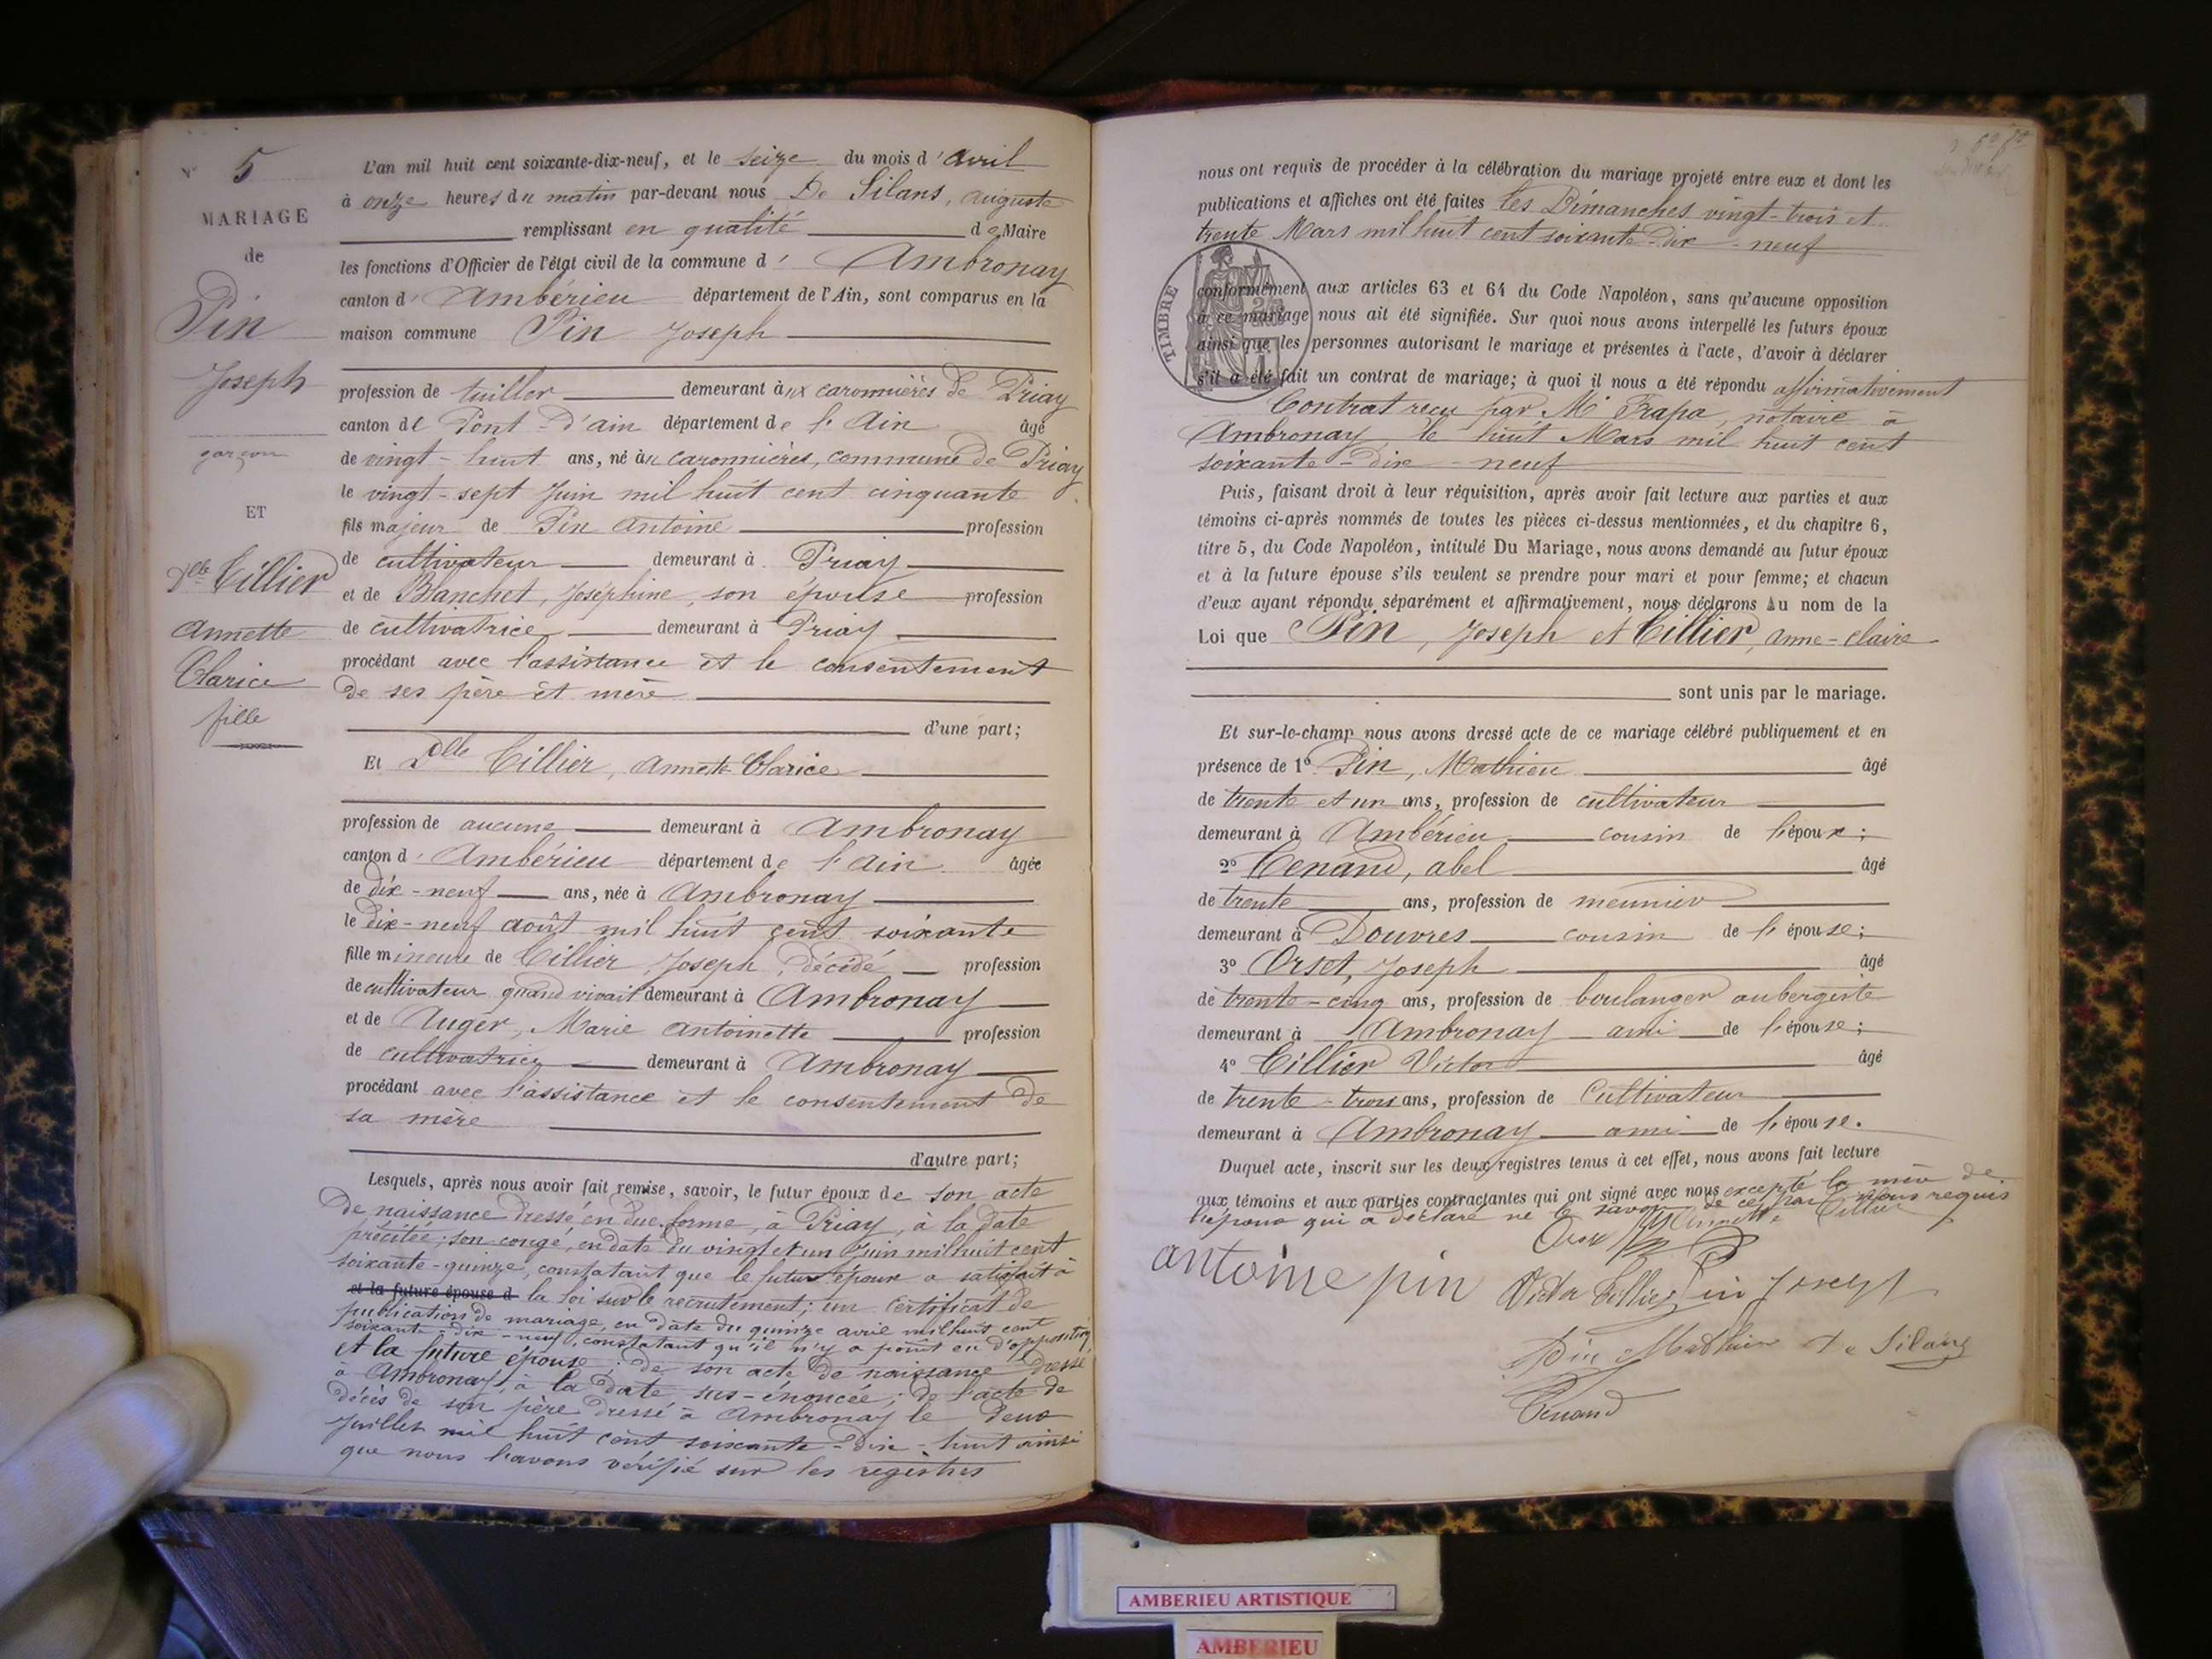 N° 5
MARIAGE
de
Pin
Joseph
garçon
ET
Dlle Tillier
Annette
Clarice
fille
L'an mil huit cent soixante-dix-neuf, et le seize du mois d'avril
à onze heures du matin par-devant nous De Silans, auguste
remplissant en qualité de Maire
les fonctions d'Officier de l'état civil de la commune d'Ambronay
canton d'Ambérieu département de l'Ain, sont comparus en la
maison commune Pin Joseph
profession de tuilier demeurant aux caronnières de Priay
canton de Pont-D'ain département de l'Ain âgé
de vingt-huit ans, né aux caronnières, commune de Priay
le vingt-sept Juin mil huit cent cinquante
fils majeur de Pin Antoine profession
de cultivateur demeurant à Priay
et de Blanchet, Joséphine, son épouse profession
de cultivatrice demeurant à Priay
procédant avec l'assistance et le consentement
de ses père et mère
d'une part;
Et Dlle Tillier, Annette Clarice
profession de aucune demeurant à Ambronay
canton d'Ambérieu département de l'Ain âgée
de dix-neuf ans, née à Ambronay
le dix-neuf août mil huit cent soixante
fille mineure de Tillier, Joseph, décédé profession
de cultivateur quand vivait demeurant à Ambronay
et de Auger, Marie Antoinette profession
de cultivatrice demeurant à Ambronay
procédant avec l'assistance et le consentement de
sa mère
d'autre part;
Lesquels, après nous avoir fait remise, savoir, le futur époux de son acte
de naissance dressé en due forme, à Priay, à la date
précitée; son congé, en date du vingt et un Juin mil huit cent
soixante-quinze, constatant que le futur époux a satisfait à
et la future épouse d la loi sur le recrutement; un certificat de
publication de mariage, en date du quinze avril mil huit cent
soixante-dix-neuf, constatant qu'il n'y a point eu d'opposition,
et la future épouse; de son acte de naissance dressé
à Ambronay, à la date sus-énoncée; de l'acte de
décès de son père dressé à Ambronay le deux
Juillet mil huit cent soixante-dix-huit ainsi
que nous l'avons vérifié sur les registres
nous ont requis de procéder à la célébration du mariage projeté entre eux et dont les
publications et affiches ont été faites les Dimanches vingt-trois et
trente Mars mil huit cent soixante-dix-neuf
TIMBRE
conformément aux articles 63 et 64 du Code Napoléon, sans qu'aucune opposition
à ce mariage nous ait été signifiée. Sur quoi nous avons interpellé les futurs époux
ainsi que les personnes autorisant le mariage et présentes à l'acte, d'avoir à déclarer
s'il a été fait un contrat de mariage; à quoi il nous a été répondu affirmativement
Contrat reçu par Me Frapa, notaire à
Ambronay, le huit Mars mil huit cent
soixante-dix-neuf
Puis, faisant droit à leur réquisition, après avoir fait lecture aux parties et aux
témoins ci-après nommés de toutes les pièces ci-dessus mentionnées, et du chapitre 6,
titre 5, du Code Napoléon, intitulé Du Mariage, nous avons demandé au futur époux
et à la future épouse s'ils veulent se prendre pour mari et pour femme; et chacun
d'eux ayant répondu séparément et affirmativement, nous déclarons Au nom de la
Loi que Pin, Joseph et Tillier, anne-claire
sont unis par le mariage.
Et sur-le-champ nous avons dressé acte de ce mariage célébré publiquement et en
présence de 1° Pin, Mathieu âgé
de trente et un ans, profession de cultivateur
demeurant à Ambérieu cousin de l'époux;
2° Tenand, abel âgé
de trente ans, profession de meunier
demeurant à Douvres cousin de l'épouse;
3° Orset, Joseph âgé
de trente-cinq ans, profession de boulanger aubergiste
demeurant à Ambronay ami de l'épouse;
4° Tillier Victor âgé
de trente-trois ans, profession de Cultivateur
demeurant à Ambronay ami de l'épouse.
Duquel acte, inscrit sur les deux registres tenus à cet effet, nous avons fait lecture
aux témoins et aux parties contractantes qui ont signé avec nous excepté la mère de
l'époux qui a déclaré ne le savoir de ce par nous requis
Annette Tillier
antoine pin Victor Tillier Pin Joseph
Pin Mathieu De Silans
Tenand
AMBERIEU ARTISTIQUE
AMBERIEU